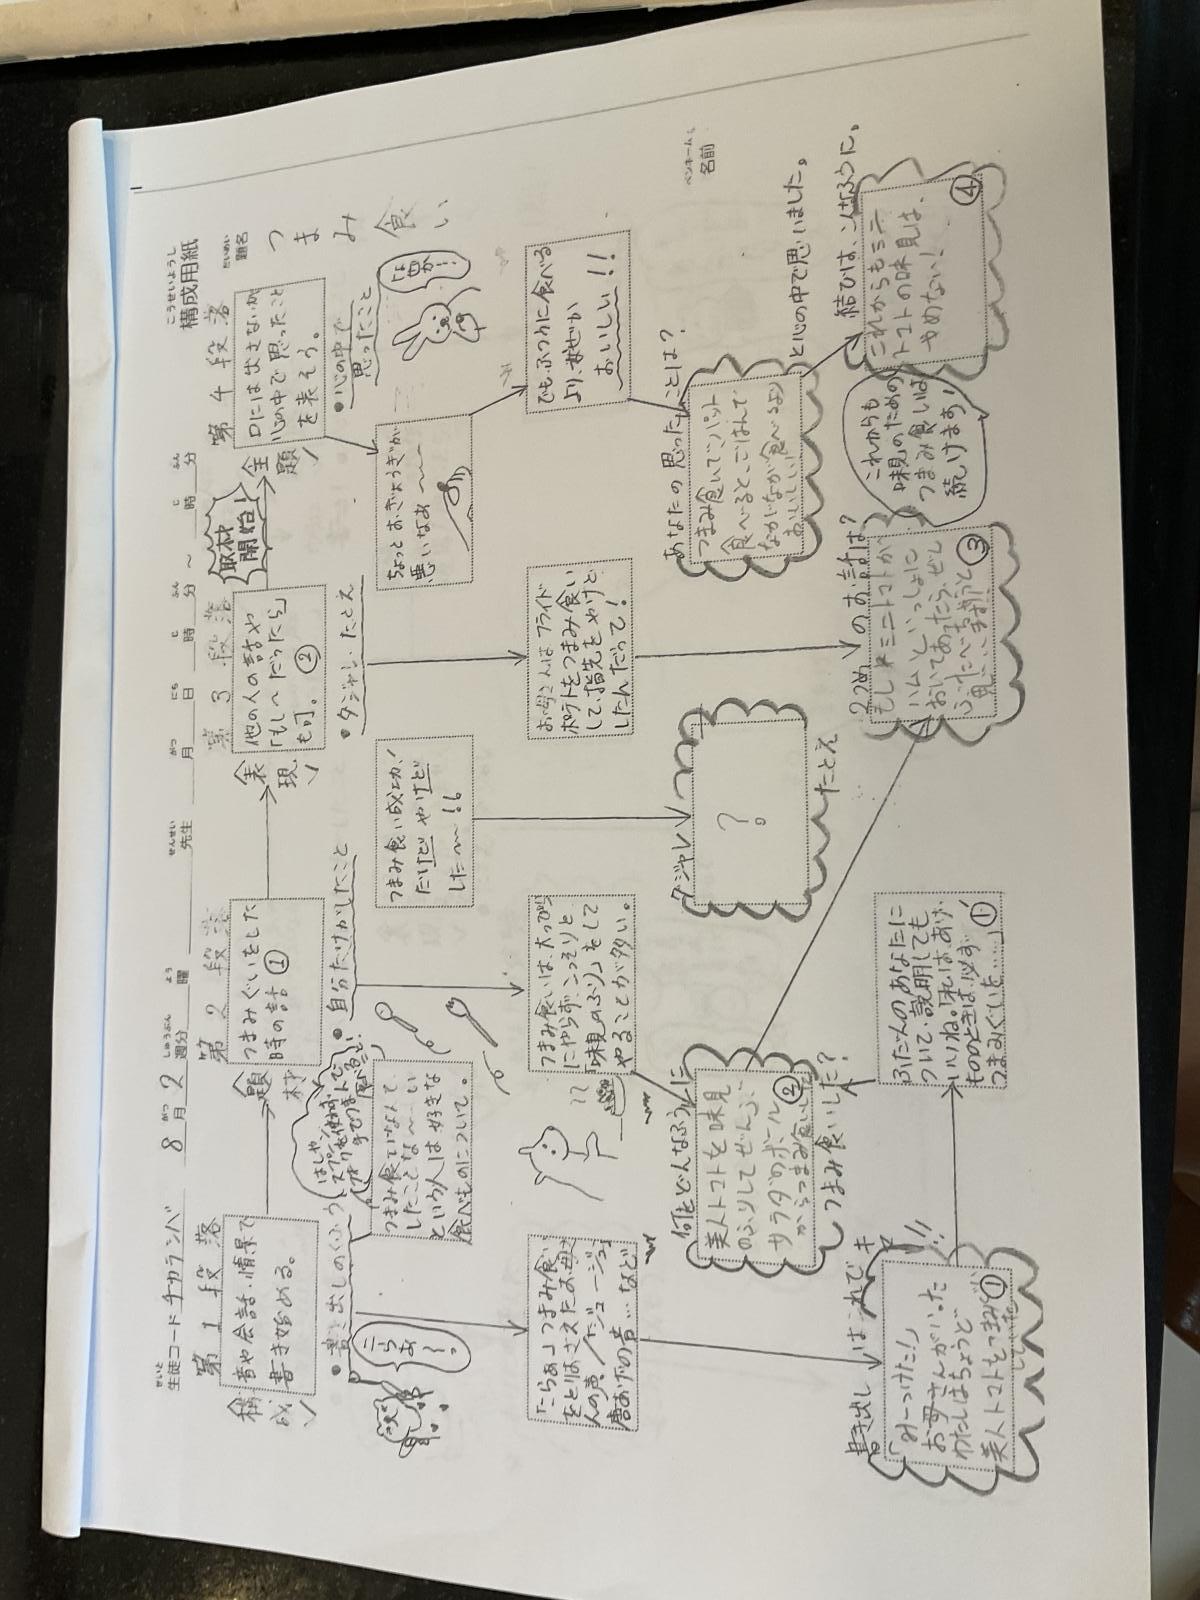 構成用紙
こうせいようし
題名
だいめい
つまみ食い
ペンネーム
名前
生徒コード チカラシバ
せいと
8月2週分
がつ
しゅうぶん
曜
よう
先生
せんせい
月
がつ
日
にち
時
じ
分
ふん
～
時
じ
分
ふん
第1段落
構成
音や会話・情景で
書き始める。
●書き出しのくふう
こらあ!
「こらぁ」つまみ食い
をとりおさえたお母
さんの声／「ジュージュー」
唐あげの音…など
書き出し
はこれでキ
マリ!!
「みーつけた!」
お母さんがいった
わたしはちょうど
美人トマトをつまみぐい
していた
①
第2段落
題材
つまみぐいをした
時の話①
●自分だけがしたこと
はしや
スプーン、
フォークを使わず
手でつまんで
食べること
つまみ食いなんて
したことな〜い
という人は好きな
食べものについて。
つまみ食いは、大っぴら
にやらず、こっそりと
「味見のふり」をして
やることが多い。
何をどんなふうに
美人トマトを味見
のふりしてぜんぶ
サラダのボール
からつまみ食いした
②
つまみ食いした?
ふだんのあなたに
ついて、説明しても
いいね。「私は、あげ
もののときは、必ず
つまみぐいを……」
①
第3段落
表現
他の人の話や
「もし〜だったら」
も可。②
●ダジャレ・たとえ
つまみ食い成功!
だけどやけど
した〜!!
お母さんはフライド
ポテトをつまみ食い
して、指先をやけど
したんだって!
ダジャレ
?
たとえ
2つめのお話は?
もしミニトマトが
ハムといっしょに
おいてあったら、ぜし
いったべちゃうと
思います
③
第4段落
取材
開始!
主題
口には出さないが
心の中で思ったこと
を表そう。
●心の中で
思ったこと
ちょっとおぎょうぎが
悪いなぁ〜
でも、ふつうに食べる
より、なぜか
おいしい!!
あなたの思ったことは?
つまみ食いでパパット
食べると、ごはんで
ながながが食べるより
おいしい
と心の中で思いました。
結びは、こんなふうに。
これからもミニ
トマトの味見は、
やめない!
④
これからも
味見のための
つまみ食いは
続けます!